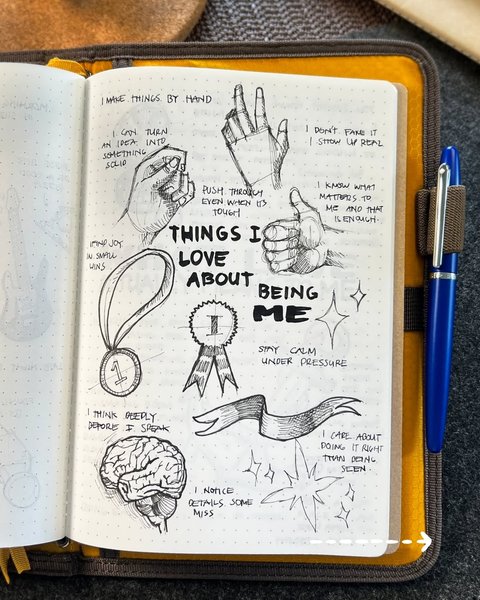 I MAKE THINGS BY HAND
I CAN TURN
AN IDEA INTO
SOMETHING
SOLID
I DON'T FAKE IT
I SHOW UP REAL
PUSH THROUGH
EVEN WHEN IT'S
TOUGH
I KNOW WHAT
MATTERS TO
ME AND THAT
IS ENOUGH.
THINGS I
LOVE
ABOUT
BEING
ME
I FIND JOY
IN SMALL
WINS
1
1
STAY CALM
UNDER PRESSURE
I THINK DEEPLY
BEFORE I SPEAK
I CARE ABOUT
DOING IT RIGHT
THAN BEING
SEEN.
I NOTICE
DETAILS SOME
MISS